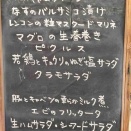 なすのバルサミコ漬け
レンコンの粒マスタードマリネ
マグロの生春巻き
ピクルス
若鶏とキュウリのねぎ塩サラダ
クラモサラダ
豚とキャベツの重ねミルク煮
エビのフリッター
生ハムサラダ・シーフードサラダ